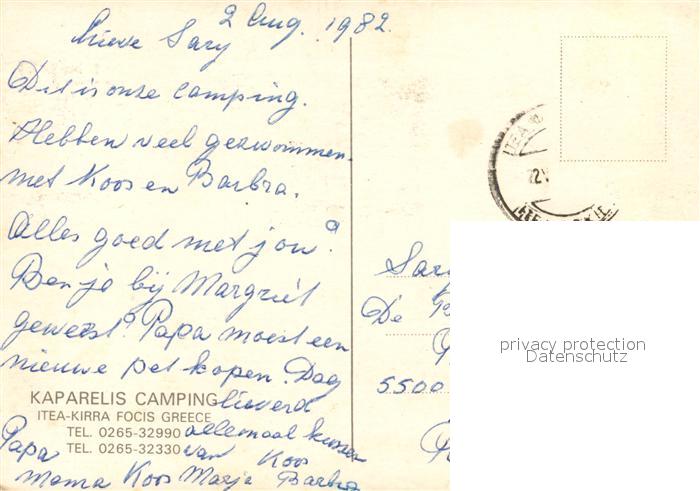 2 Aug. 1982.
Lieve Sary
Dit is onze camping.
Hebben veel gezwommen.
met Koos en Barbra.
Alles goed met jou?
Ben je bij Margriet
geweest? Papa moest een
nieuwe pet kopen. Dag
lieverd
allemaal kussen
van Koos
Papa
Mama Koos Marja Barbra
KAPARELIS CAMPING
ITEA-KIRRA FOCIS GREECE
TEL. 0265-32990
TEL. 0265-32330
ITEA
Sary
De
5500
privacy protection
Datenschutz